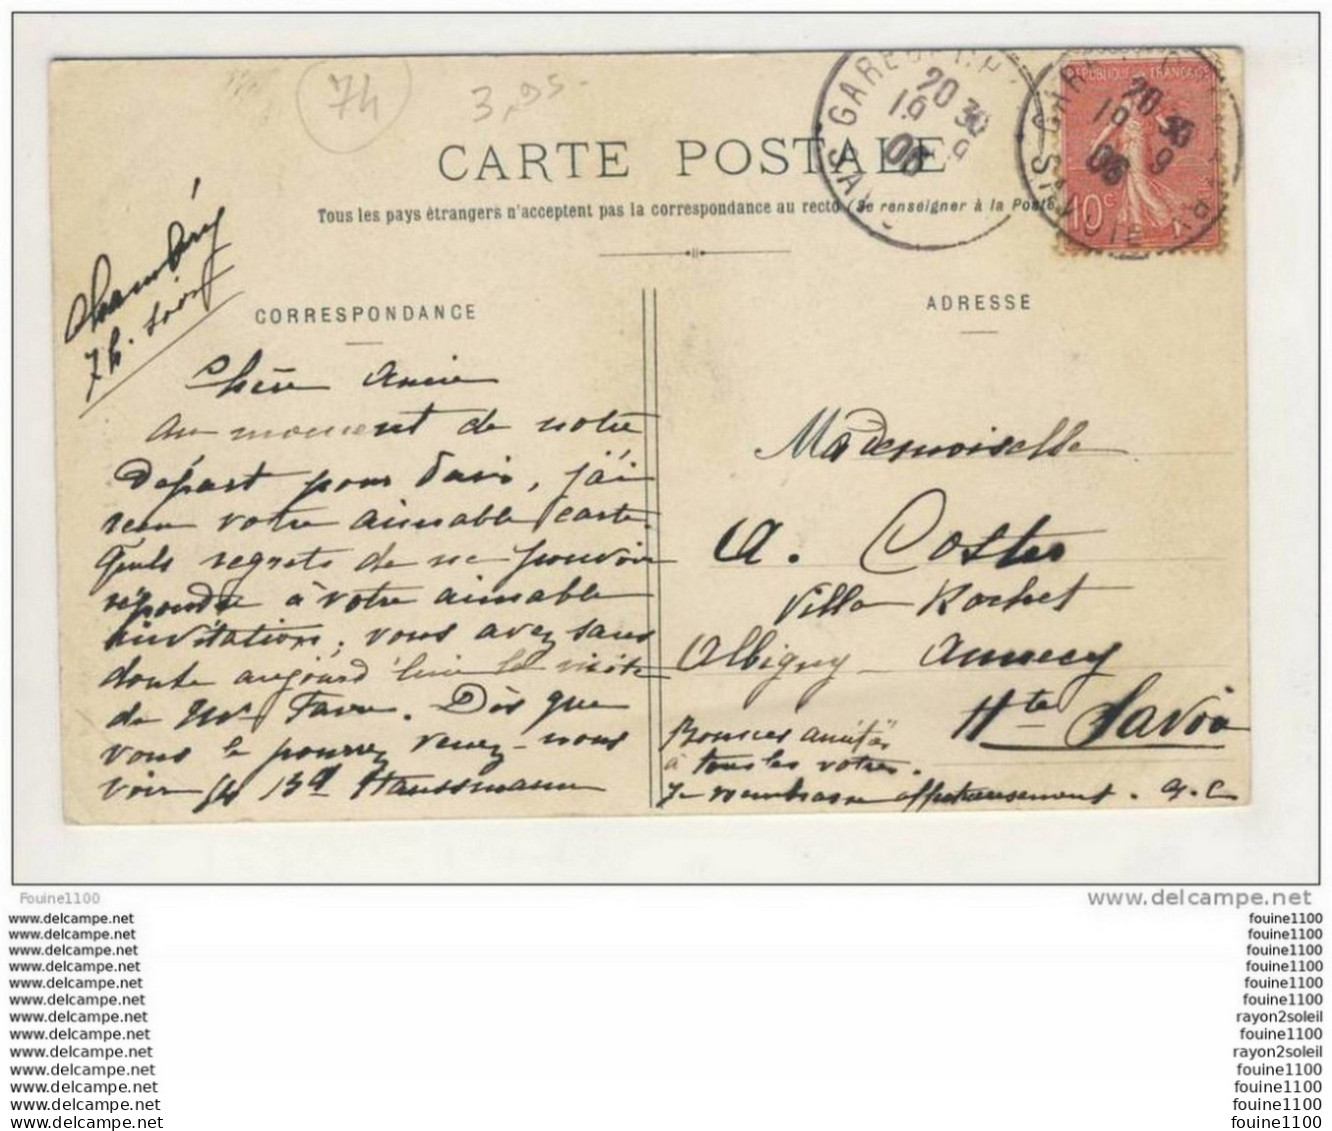 74
3,95-
CARTE POSTALE
Tous les pays étrangers n'acceptent pas la correspondance au recto (Se renseigner à la Poste
GARE
20 30
19 9
06
SAVOIE
RÉPUBLIQUE FRANÇAISE
10c
Chambéry
7h. soir
CORRESPONDANCE
Chère Amie
Au moment de notre
départ pour Paris, j'ai
reçu votre aimable carte.
Quels regrets de ne pouvoir
répondre à votre aimable
invitation; vous avez sans
doute aujourd'hui la visite
de Mr Favre. Dès que
vous le pourrez venez-nous
voir Bd Haussmann
ADRESSE
Mademoiselle
A. Costes
Villa Rochet
Albigny Annecy
Hte Savoie
Bonnes amitiés
à tous les votres.
Je vous embrasse affectueusement.
Fouine1100
www.delcampe.net
www.delcampe.net
fouine1100
www.delcampe.net
fouine1100
www.delcampe.net
fouine1100
www.delcampe.net
fouine1100
www.delcampe.net
fouine1100
www.delcampe.net
fouine1100
www.delcampe.net
rayon2soleil
www.delcampe.net
fouine1100
www.delcampe.net
rayon2soleil
www.delcampe.net
fouine1100
www.delcampe.net
fouine1100
www.delcampe.net
fouine1100
www.delcampe.net
fouine1100